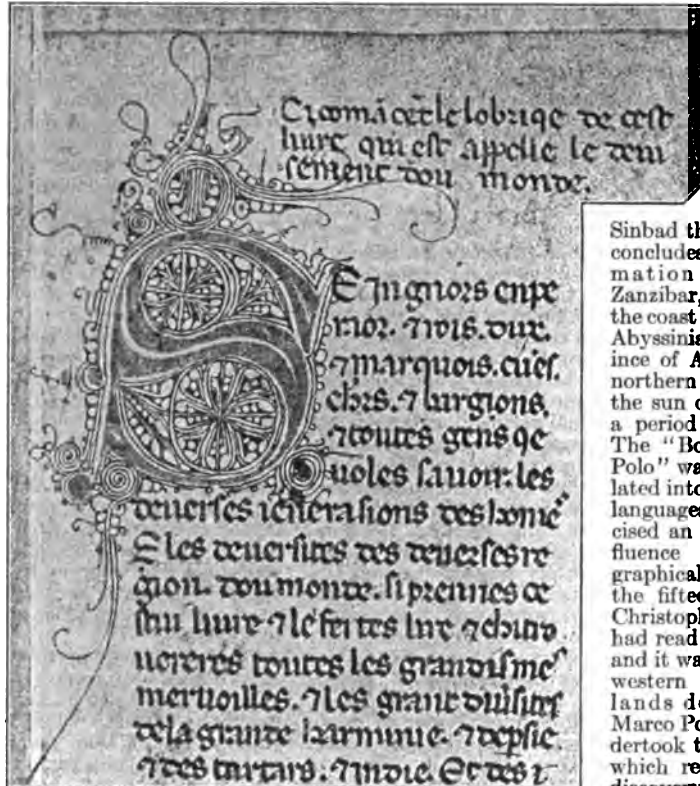 Ci comācēt le lobrique de cest
liure qui est appelle le deui
sement dou monde.
Seingnors enpe
raor. ⁊ rois. dux.
⁊ marquois. cuēs.
chrs. ⁊ burgions.
⁊ toutes gens qe
uoles sauoir. les
deuerses ienerasions des home
E les deuersites des deuerses re
gion. dou monde. si prennes ce
stui liure ⁊ le feites lire ⁊ chi tro
uereres toutes les grandismes
meruoilles. ⁊ les grant diuisites
de la grande harminie. ⁊ de psie.
⁊ des tartars. ⁊ indie. Et des
Sinbad th
concludes
mation
Zanzibar,
the coast
Abyssinia
ince of A
northern
the sun
a period
The "Bo
Polo" wa
lated into
languages
cised an
fluence
graphical
the fiftee
Christoph
had read
and it wa
western
lands de
Marco Po
dertook t
which re